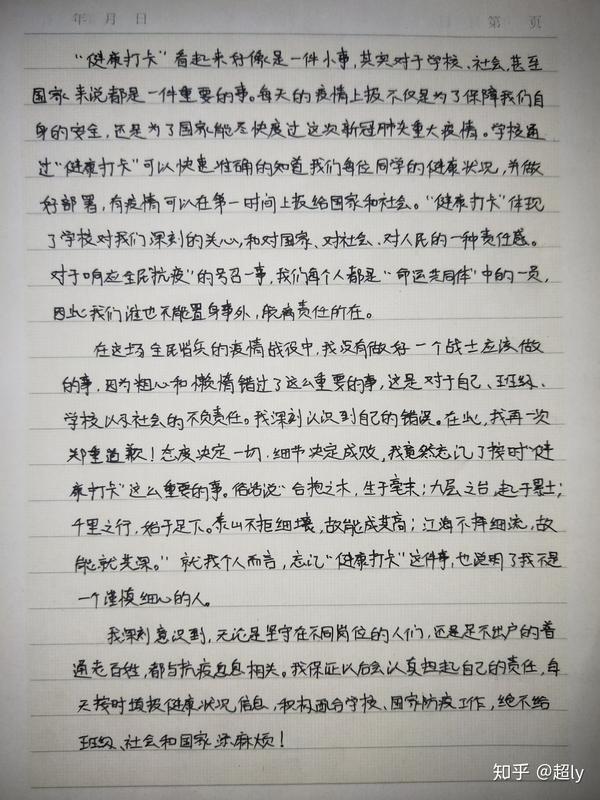 年 月 日 第 页
“健康打卡”看起来好像是一件小事,其实对于学校、社会,甚至
国家来说都是一件重要的事。每天的疫情上报不仅是为了保障我们自
身的安全,还是为了国家能尽快度过这次新冠肺炎重大疫情。学校通
过“健康打卡”可以快速准确的知道我们每位同学的健康状况,并做
好部署,有疫情可以在第一时间上报给国家和社会。“健康打卡”体现
了学校对我们深刻的关心,和对国家、对社会、对人民的一种责任感。
对于响应全民“抗疫”的号召一事,我们每个人都是“命运共同体”中的一员,
因此我们谁也不能置身事外,脱离责任的在。
在这场全民皆兵的疫情战役中,我没有做好一个战士应该做
的事,因为粗心和懒惰错过了这么重要的事,这是对于自己、班级、
学校以及社会的不负责任。我深刻认识到自己的错误。在此,我再一次
郑重道歉!态度决定一切,细节决定成败,我竟然忘记了按时“健
康打卡”这么重要的事。俗话说“合抱之木,生于毫末;九层之台,起于累土;
千里之行,始于足下。泰山不拒细壤,故能成其高;江海不择细流,故
能就其深。”就我个人而言,忘记“健康打卡”这件事,也说明了我不是
一个谨慎细心的人。
我深刻意识到,无论是坚守在不同岗位的人们,还是足不出户的普
通老百姓,都与抗疫息息相关。我保证以后会认真担起自己的责任,每
天按时填报健康状况信息,积极配合学校、国家防疫工作,绝不给
班级、社会和国家添麻烦!
知乎 @超ly